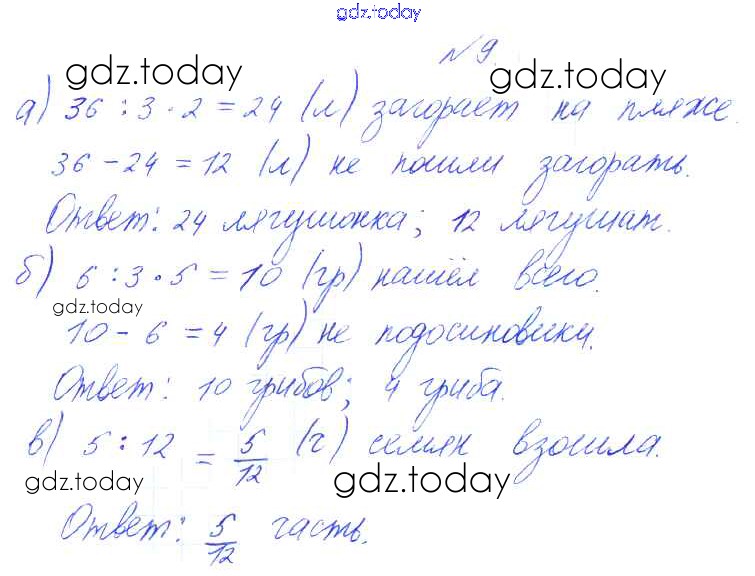 gdz.today
№ 9.
gdz.today gdz.today
а) 36 : 3 · 2 = 24 (л) загорает на пляже.
36 - 24 = 12 (л) не пошли загорать.
Ответ: 24 лягушонка; 12 лягушат.
б) 6 : 3 · 5 = 10 (гр) нашёл всего.
gdz.today
10 - 6 = 4 (гр) не подосиновики.
Ответ: 10 грибов; 4 гриба.
в) 5 : 12 = 5/12 (ч) семян взошла.
gdz.today gdz.today
Ответ: 5/12 часть.